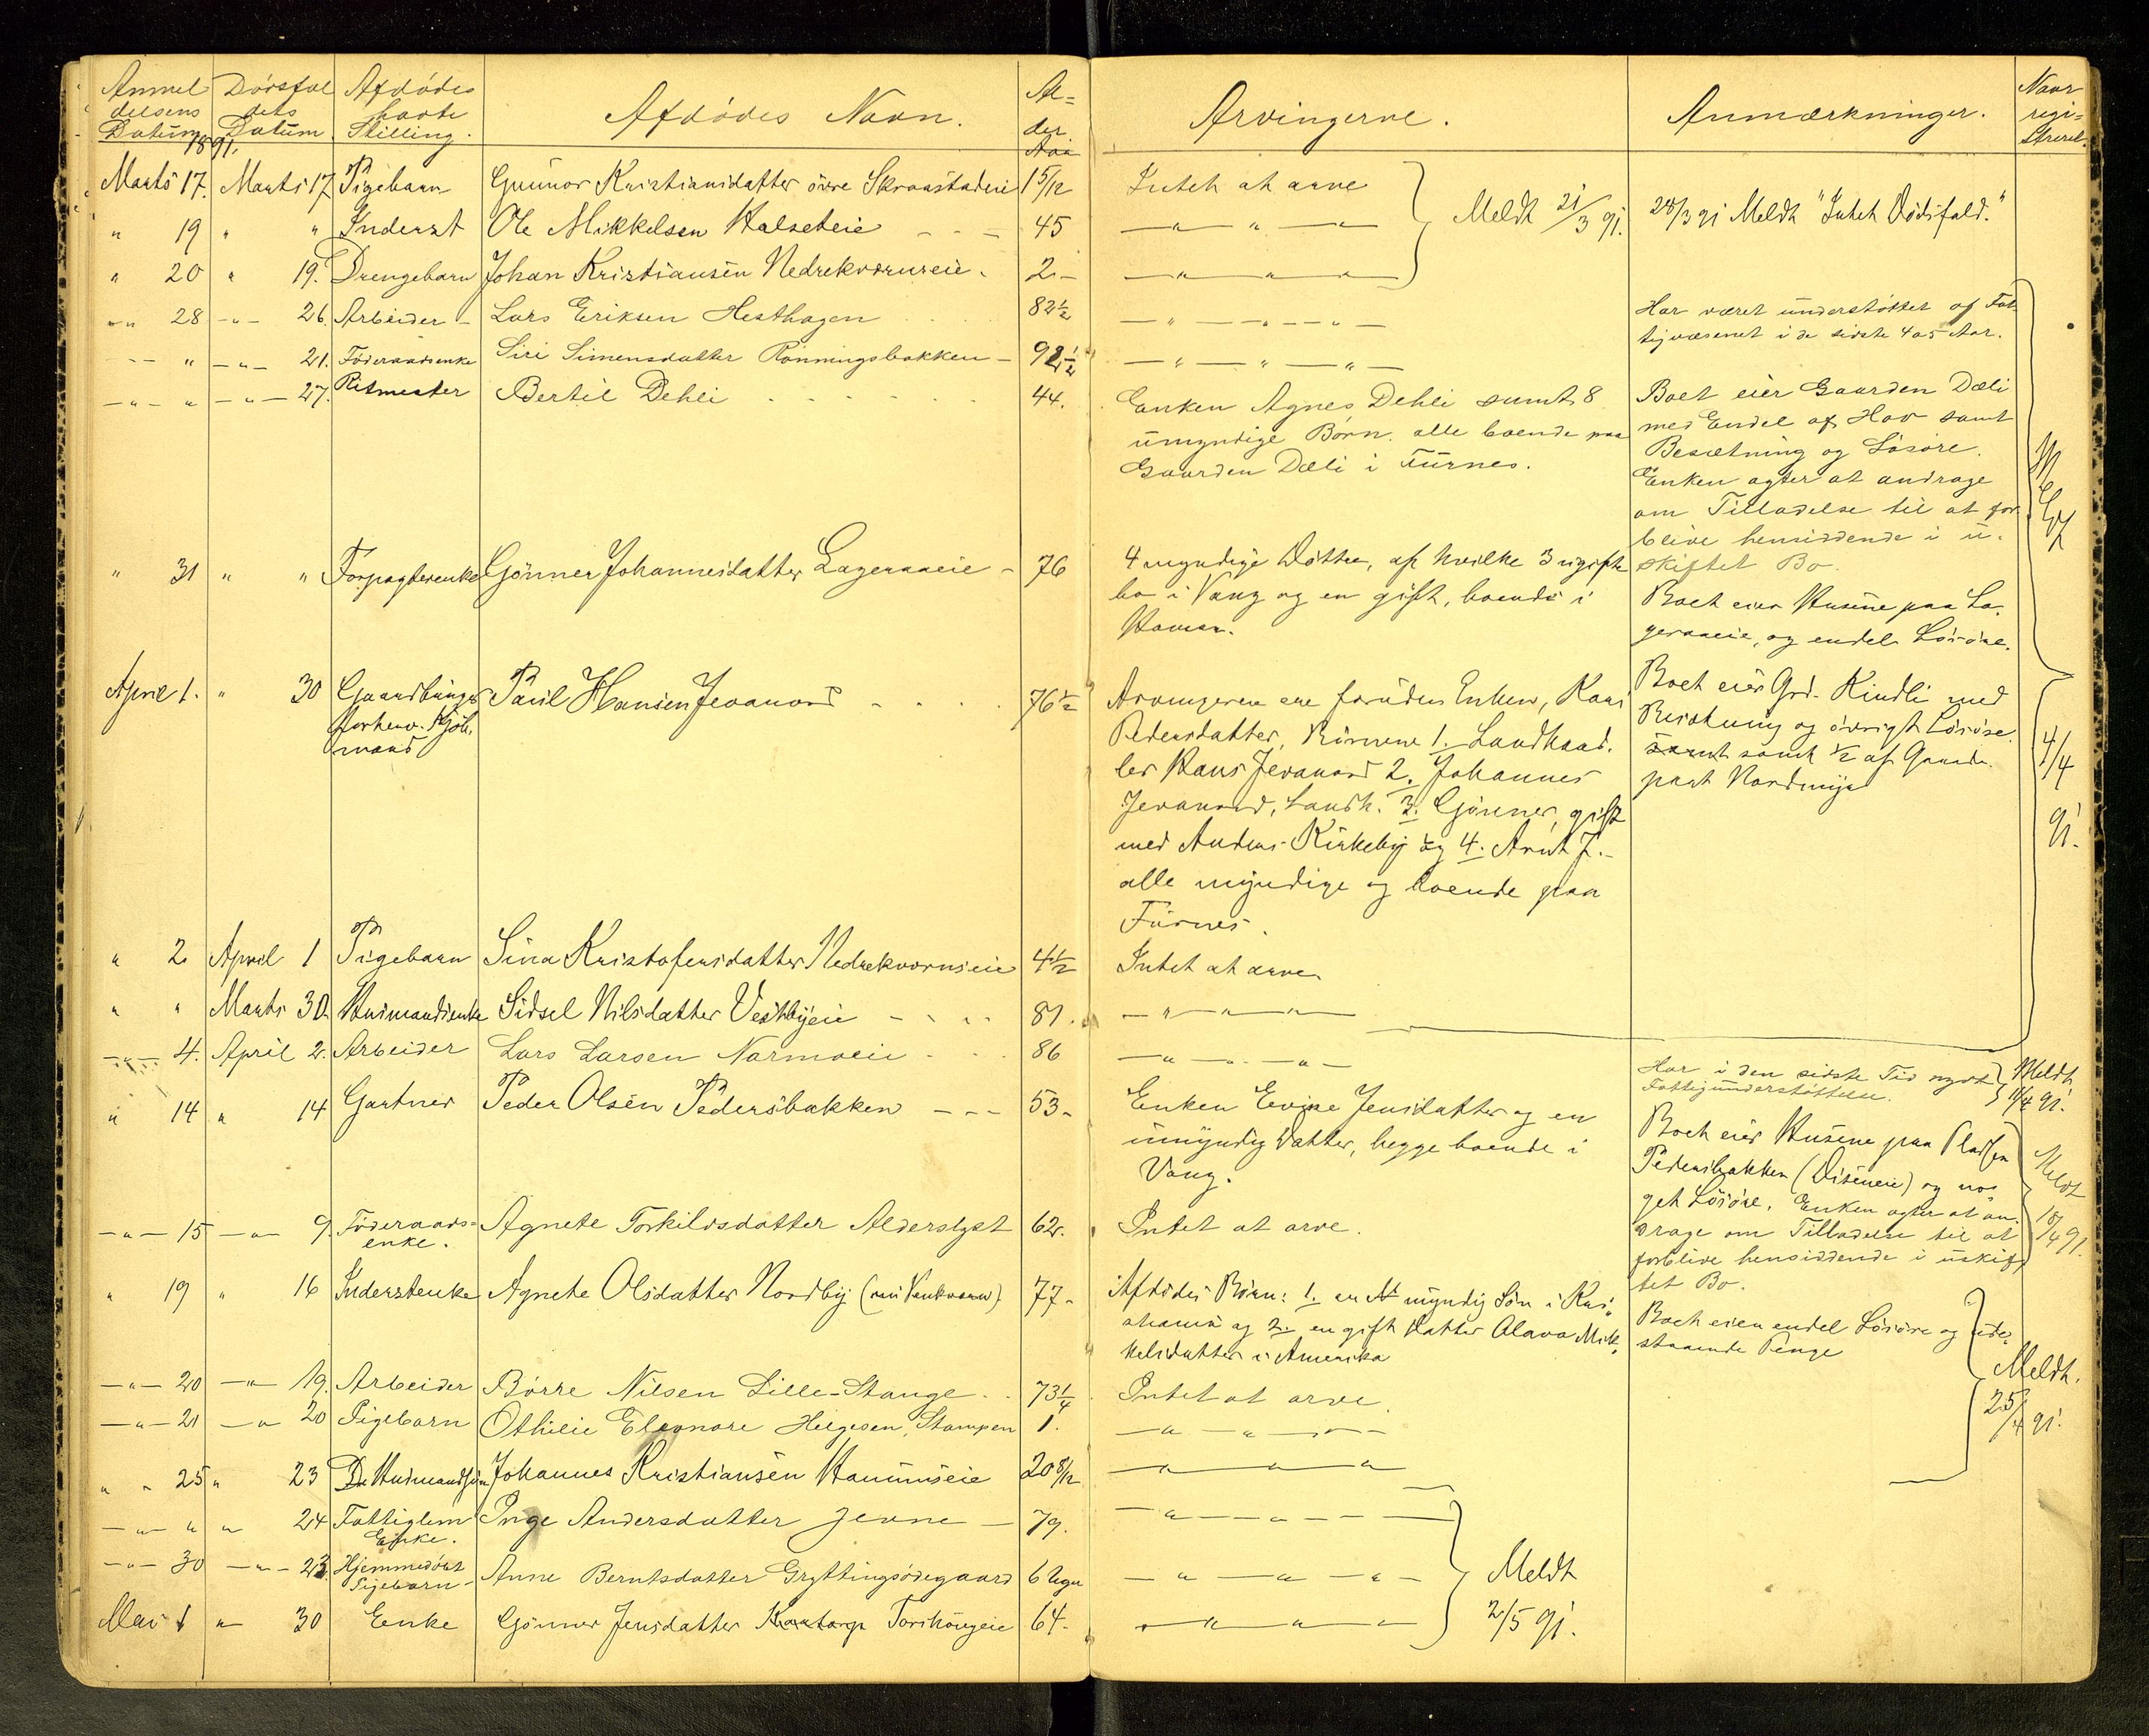 Anmeldelsens Datum Dødsfaldets Datum Afdødes havte Stilling. Afdødes Navn. Alder Aar Arvingerne. Anmærkninger. Naar registreret.
1891.
Marts 17. Marts 17 Pigebarn Gunnor Kristiansdatter övre Skraastadeie 1 5/12 Intet at arve
" 19 " " Inderst Ole Mikkelsen Halseteie - - - 45 — " — " — Meldt 21/3 91. 28/3 91 Meldt "Intet Dödsfald."
" 20 " 19. Drengebarn Johan Kristiansen Nedrekværnseie. 2 — " — " —
" 28 - " - 26. Arbeider - Lars Eriksen Hesthagen 82 1/2 — " — " — " —
Har været understöttet af Fat-
tigvæsenet i de sidste 4 a 5 Aar.
- - " - " - 21. Föderaadsenke Siri Simensdatter Rönningsbakken - 92 1/2 — " — " — " —
- " - " - " - 27. Ritmester Bertil Dehli - - - - - 44.
Enken Agnes Dehli samt 8
umyndige Børn. alle boende paa
Gaarden Dæli i Furnes.
Boet eier Gaarden Dæli
med Endel af Hov samt
Besætning og Lösöre.
Enken agter at andrage
om Tilladelse til at for
blive hensiddende i u-
skiftet Bo.
" 31 " " Forpagterenke Gönner Johannesdatter Lageraaeie - 76
4 myndige Döttre, af hvilke 3 ugifte
bo i Vang og en gift, boende i
Hamar.
Boet eier Husene paa La-
geraaeie, og endel Lösöre.
April 1. " 30 Gaardbruger
forhenv. Kjöb.
mand
Paul Hansen Jevanord - - - - 76 1/2
Arvingerne ere foruden Enken, Kari
Pedersdatter, Börnene 1. Landhand.
ler Hans Jevanord 2. Johannes
Jevanord, Landh. 3. Gönner, gift
med Anders Kirkeby og 4. Arnt J. -
alle myndige og boende paa
Furnes.
Boet eier Grd. Kindli med
Besætning og övrigt Lösöre
samt samt 1/2 af Gaards
part Nordmyr
4/4
91.
" 2 April 1 Pigebarn Sina Kristofersdatter Nedrekværnseie 4 1/2 Intet at arve
" " Marts 30. Husmandsenke Sidsel Nilsdatter Vestbyeie - - - - 81. — " — " — " —
- " - 4. April 2. Arbeider Lars Larsen Narmoeie - - - 86 — " — " — " —
Har i den sidste Tid nydt
Fattigunderstöttelse.
Meldt
11/4 91.
" 14 " 14 Gartner Peder Olsen Pedersbakken - - - 53 -
Enken Evine Jensdatter og en
umyndig Datter, begge boende i
Vang.
Boet eier Husene paa Pladsen
Pedersbakken (Diseneie) og no-
get Lösöre. Enken agter at an-
drage om Tilladelse til at
forblive hensiddende i uskif
tet Bo.
Meldt
18/4 91.
- " - 15 - " - 9. Föderaads-
enke.
Agnete Torkildsdatter Alderslyst 62. Intet at arve.
" 19 " 16 Inderstenke Agnete Olsdatter Nordby 77 -
Afdödes Börn: 1. en myndig Sön i Kri-
stiania og 2. en gift Datter Olava Mik-
kelsdatter i Amerika
Boet eier endel Lösöre og ude-
staaende Penge
- " - 20 - " - 19. Arbeider Börre Nilsen Lille-Stange - - 73 1/4 Intet at arve.
Meldt.
25/4 91.
- " - 21 - " 20 Pigebarn Othilie Eleonore Helgesen, Stampen 1. — " — " — " —
" " 25 " 23 Husmandssön Johannes Kristiansen Hammerseie 20 8/12 — " — " — " —
- " - " " 24 Fattiglem
Enke.
Inge Andersdatter Jevne - 79. — " — " — " —
- " - 30 - " - 23. Hjemmedöbt
Pigebarn -
Anne Berntsdatter Gryttingsödegaard 6 Uger — " — " — " — Meldt
Mai 1 " 30 Enke Gönner Jensdatter Torshöugeie 64. - — " — " — " — 2/5 91.